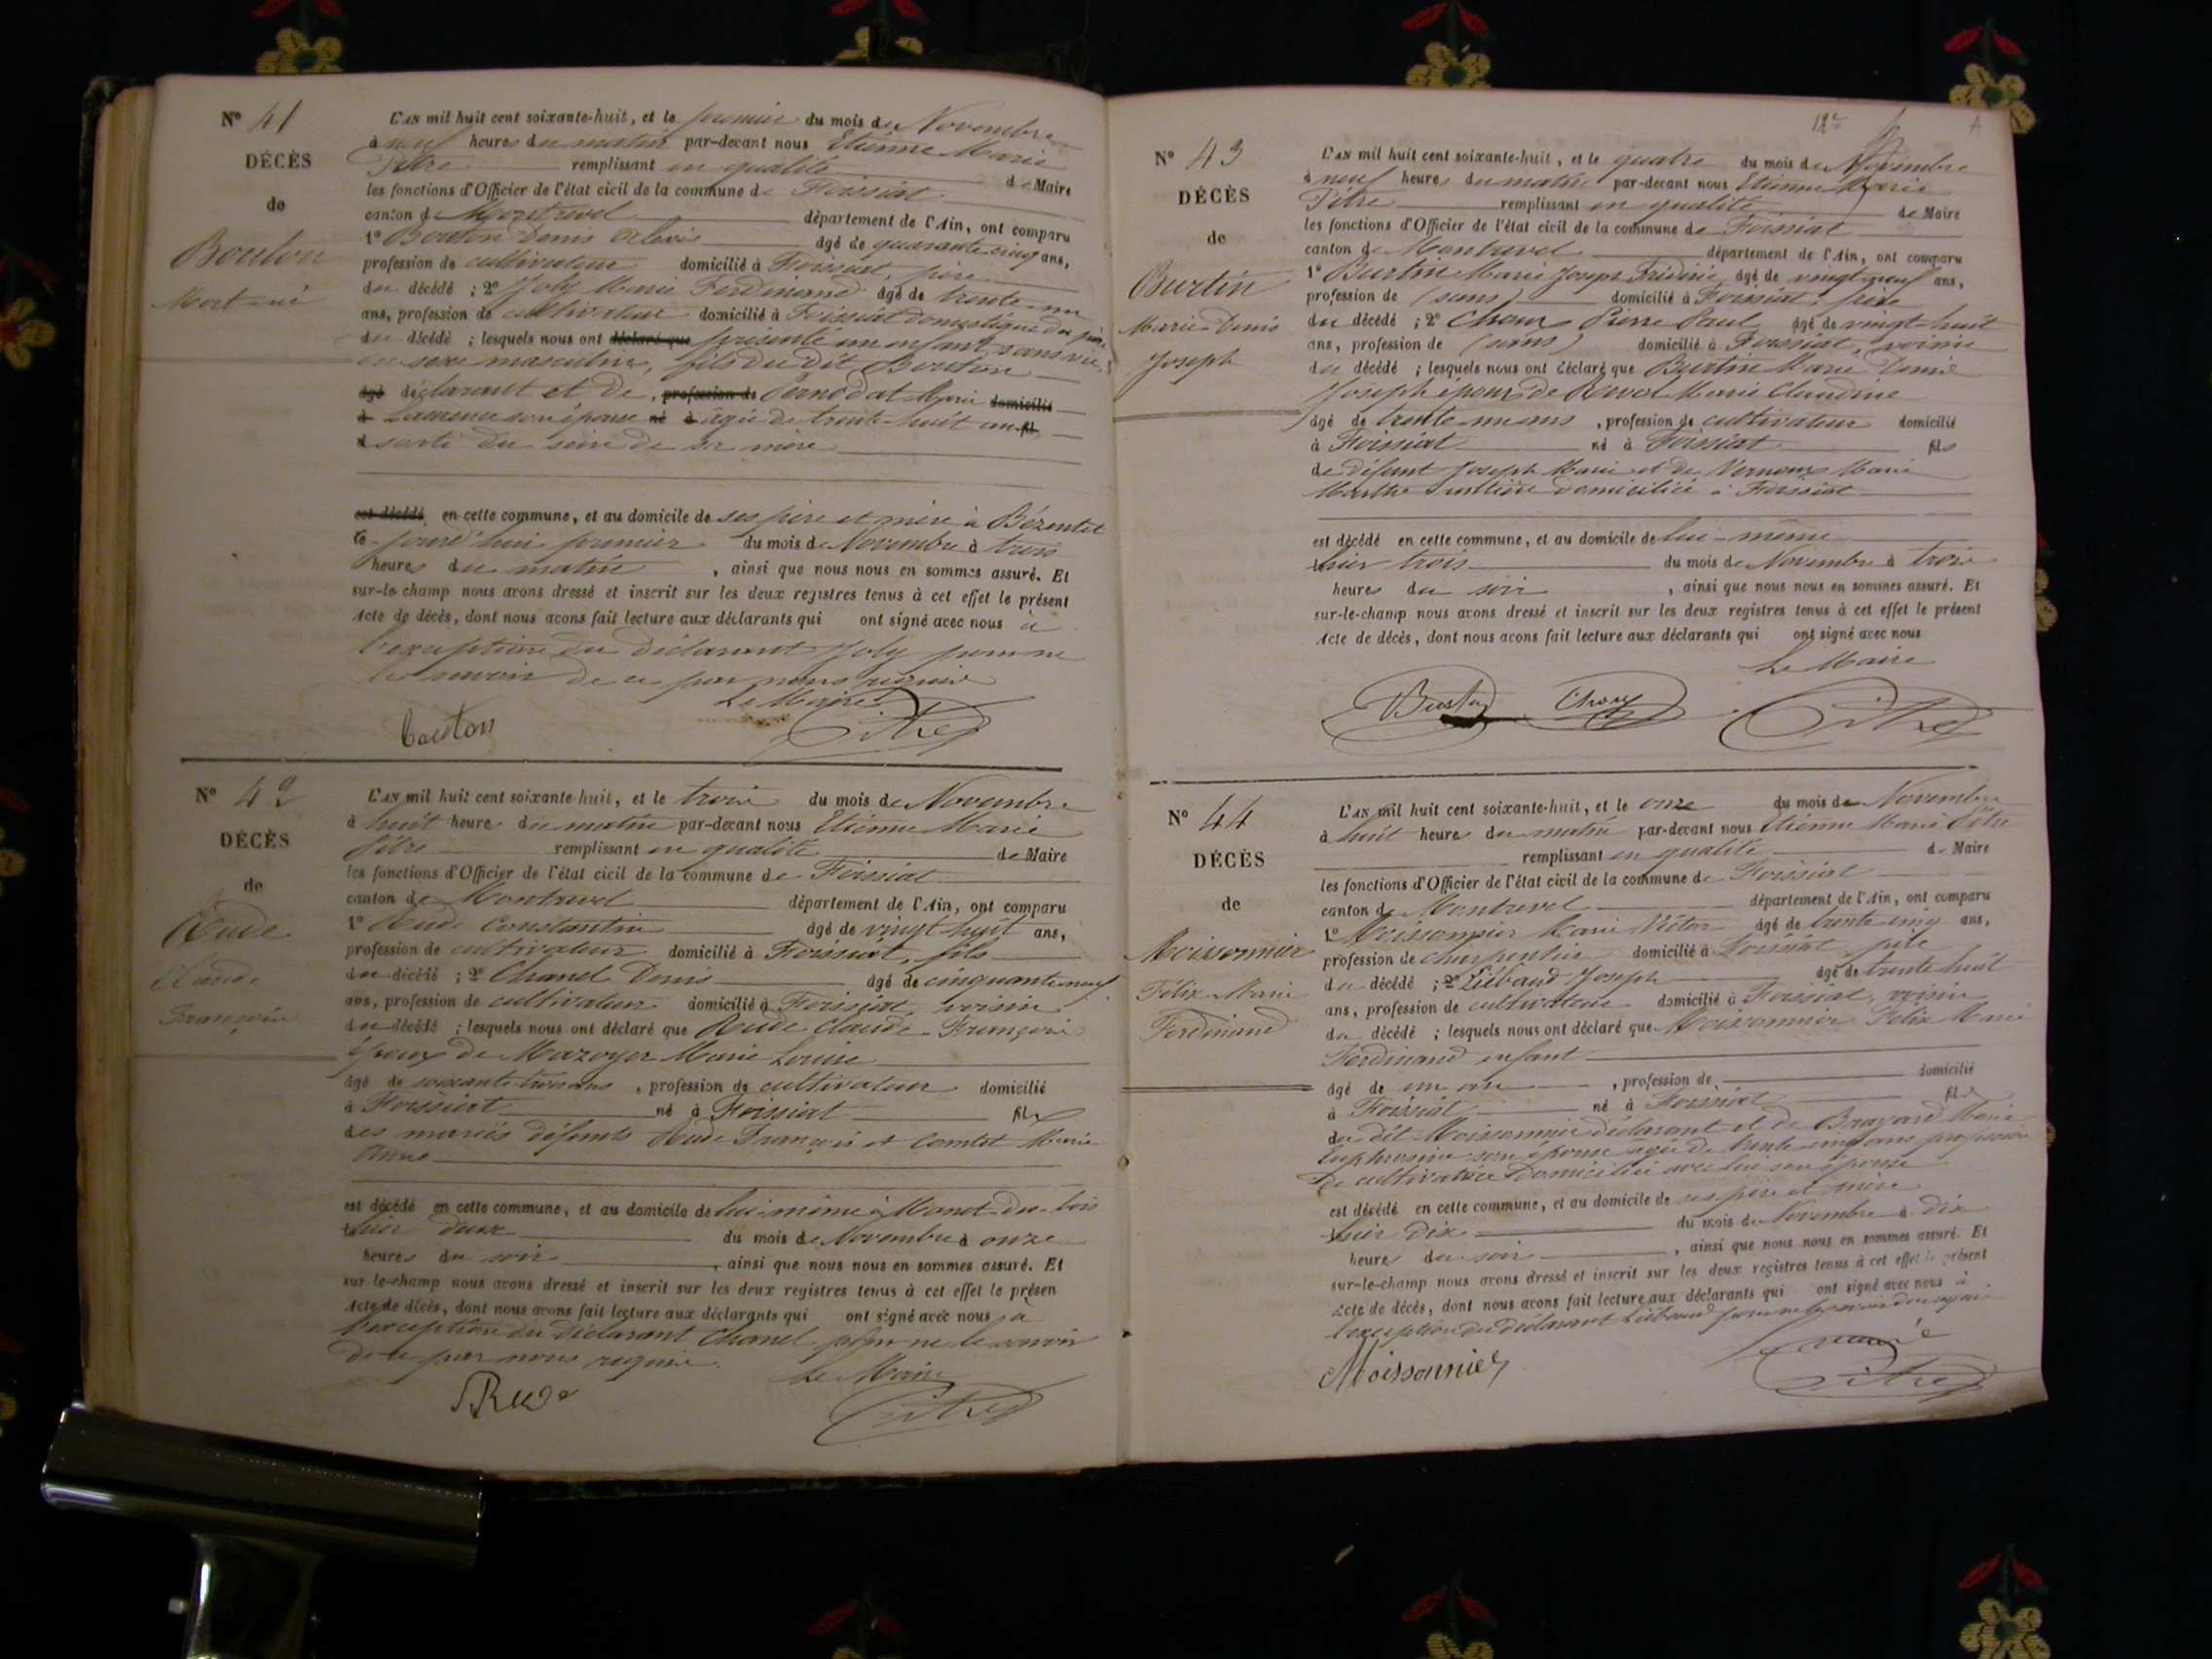 N° 41
DÉCÈS
de
Bouton
Mort-né
L'AN mil huit cent soixante-huit, et le premier du mois de Novembre
à neuf heures du matin par-devant nous Etienne Marie
Pitre remplissant en qualité de Maire
les fonctions d'Officier de l'état civil de la commune de Foissiat
canton de Montrevel département de l'Ain, ont comparu
1° Bouton Denis Alexis âgé de quarante cinq ans,
profession de cultivateur domicilié à Foissiat, père
du décédé ; 2° Joly Marie Ferdinand âgé de trente-un
ans, profession de cultivateur domicilié à Foissiat domestique du père
du décédé ; lesquels nous ont déclaré que présenté un enfant sans vie,
du sexe masculin, fils du dit Bouton
âgé déclarant et de , profession de Pernodat Marie domicilié
à Laurence son épouse né à âgée de trente-huit ans fil
et sorti du sein de sa mère
est décédé en cette commune, et au domicile de ses père et mère à Bézentet
le jourd'hui premier du mois de Novembre à trois
heures du matin , ainsi que nous nous en sommes assuré. Et
sur-le champ nous avons dressé et inscrit sur les deux registres tenus à cet effet le présent
Acte de décès, dont nous avons fait lecture aux déclarants qui ont signé avec nous à
l'exception du déclarant Joly pour ne
le savoir de ce par nous requis
Le Maire
Bouton Pitre
N° 42
DÉCÈS
de
Rude
Claude
François
L'AN mil huit cent soixante-huit, et le trois du mois de Novembre
à huit heures du matin par-devant nous Etienne Marie
Pitre remplissant en qualité de Maire
les fonctions d'Officier de l'état civil de la commune de Foissiat
canton de Montrevel département de l'Ain, ont comparu
1° Rude Constantin âgé de vingt huit ans,
profession de cultivateur domicilié à Foissiat, fils
du décédé ; 2° Chanel Denis âgé de cinquante neuf
ans, profession de cultivateur domicilié à Foissiat, voisin
du décédé ; lesquels nous ont déclaré que Rude Claude-François
époux de Mazoyer Marie Louise
âgé de soixante-trois ans , profession de cultivateur domicilié
à Foissiat né à Foissiat fils
des mariés défunts Rude François et Comtet Marie
Anne
est décédé en cette commune, et au domicile de lui-même à Monet-du-bois
hier deux du mois de Novembre à onze
heures du soir , ainsi que nous nous en sommes assuré. Et
sur-le-champ nous avons dressé et inscrit sur les deux registres tenus à cet effet le présen
Acte de décès, dont nous avons fait lecture aux déclarants qui ont signé avec nous à
l'exception du déclarant Chanel pour ne le savoir
de ce par nous requis.
Le Maire
Rude Pitre
12e
N° 43
DÉCÈS
de
Burtin
Marie-Denis
Joseph
L'AN mil huit cent soixante-huit, et le quatre du mois de Novembre
à neuf heures du matin par-devant nous Etienne Marie
Pitre remplissant en qualité de Maire
les fonctions d'Officier de l'état civil de la commune de Foissiat
canton de Montrevel département de l'Ain, ont comparu
1° Burtin Marie Joseph Frédéric âgé de vingt-neuf ans,
profession de (sans) domicilié à Foissiat, frère
du décédé ; 2° Choux Pierre Paul âgé de vingt-huit
ans, profession de (sans) domicilié à Foissiat, voisin
du décédé ; lesquels nous ont déclaré que Burtin Marie Denis
Joseph époux de Revel Marie Claudine
âgé de trente un ans , profession de cultivateur domicilié
à Foissiat né à Foissiat fils
de défunt Joseph Marie et de Vernoux Marie
Marthe rentière domiciliée à Foissiat
est décédé en cette commune, et au domicile de lui-même
hier trois du mois de Novembre à trois
heures du soir , ainsi que nous nous en sommes assuré. Et
sur-le-champ nous avons dressé et inscrit sur les deux registres tenus à cet effet le présent
Acte de décès, dont nous avons fait lecture aux déclarants qui ont signé avec nous
Le Maire
Burtin Choux Pitre
N° 44
DÉCÈS
de
Moissonnier
Félix-Marie
Ferdinand
L'AN mil huit cent soixante-huit, et le onze du mois de Novembre
à huit heures du matin par-devant nous Etienne Marie Pitre
remplissant en qualité de Maire
les fonctions d'Officier de l'état civil de la commune de Foissiat
canton de Montrevel département de l'Ain, ont comparu
1° Moissonnier Marie Victor âgé de trente cinq ans,
profession de charpentier domicilié à Foissiat, père
du décédé ; 2° Liébaud Joseph âgé de trente huit
ans, profession de cultivateur domicilié à Foissiat, voisin
du décédé ; lesquels nous ont déclaré que Moissonnier Félix Marie
Ferdinand enfant
âgé de un an , profession de domicilié
à Foissiat né à Foissiat fils
du dit Moissonnier déclarant et de Brayard Marie
Euphrosine son épouse âgée de trente-cinq ans profession
de cultivatrice domiciliée avec lui son épouse
est décédé en cette commune, et au domicile de ses père et mère
hier dix du mois de Novembre à dix
heures du soir , ainsi que nous nous en sommes assuré. Et
sur-le-champ nous avons dressé et inscrit sur les deux registres tenus à cet effet le présent
Acte de décès, dont nous avons fait lecture aux déclarants qui ont signé avec nous à
l'exception du déclarant Liébaud pour ne le savoir de ce requis
Le maire
Moissonnier Pitre